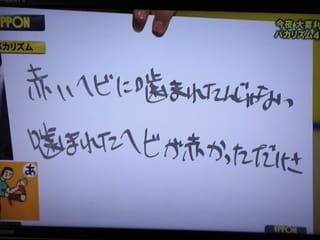 IPPON
今夜 大喜利
バカリズム4
バカリズム
赤いヘビに噛まれたんじゃない
噛まれたヘビが赤かっただけさ
あ
IPPON